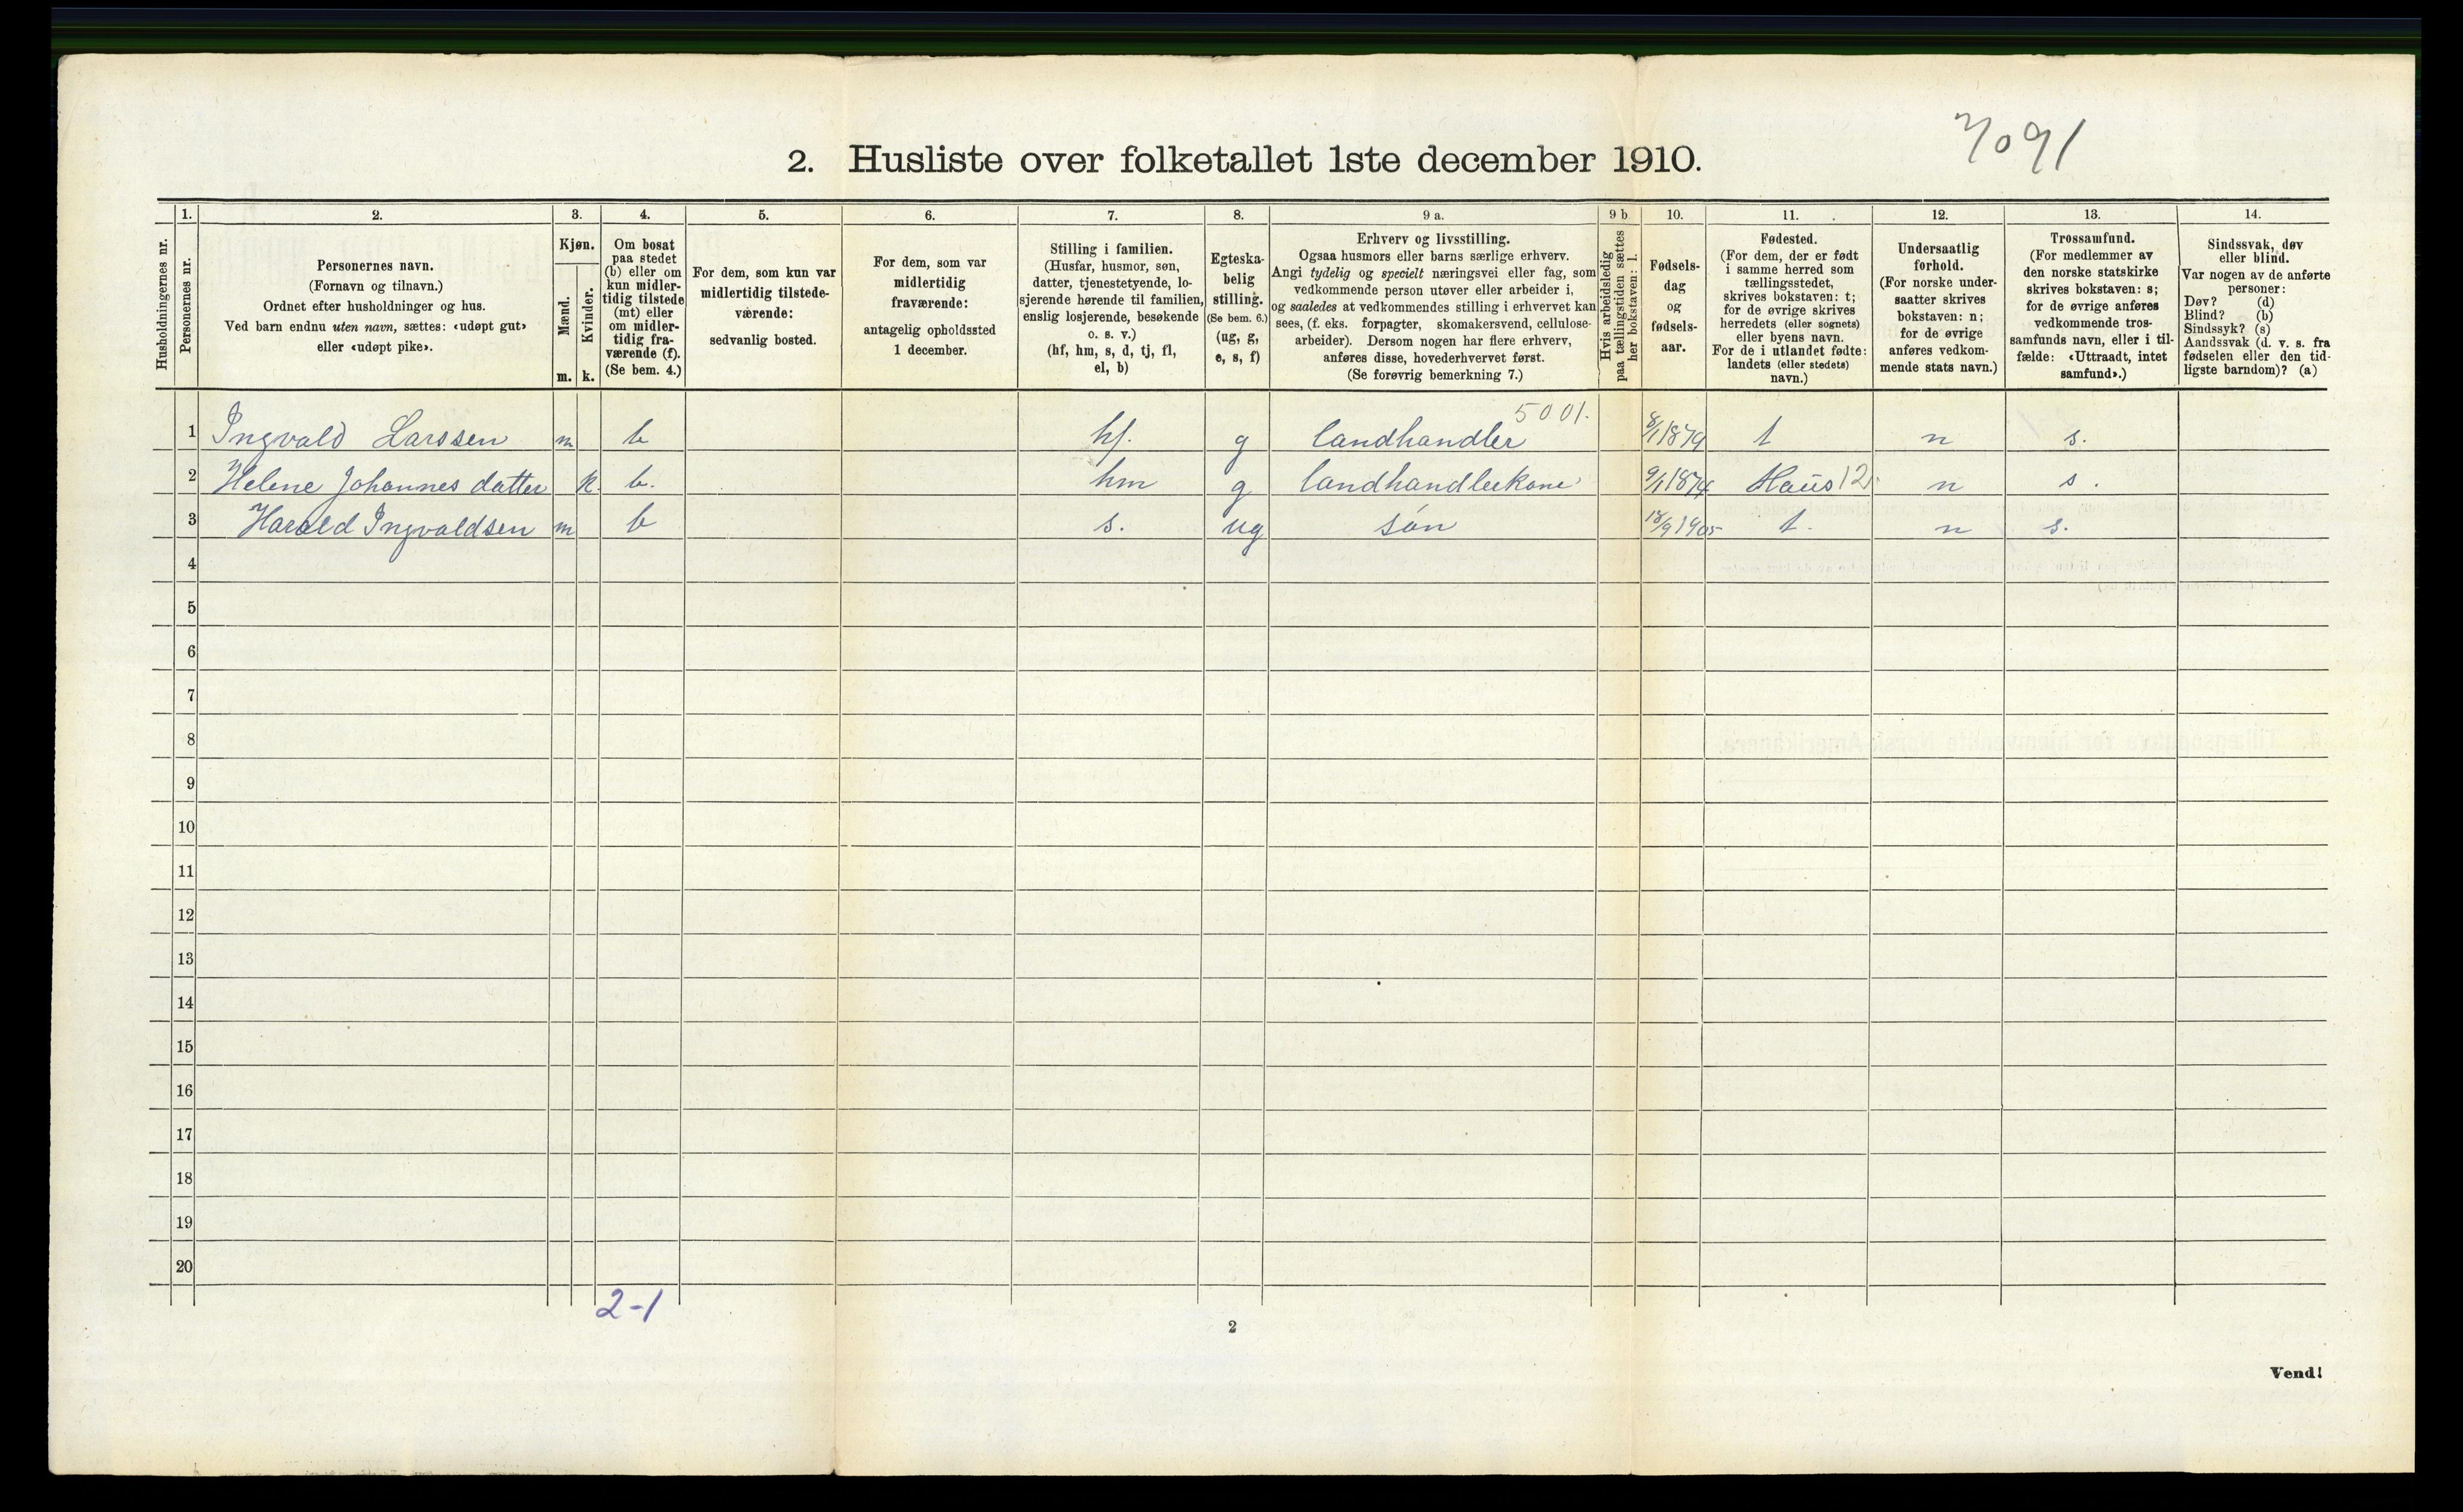 7091
2. Husliste over folketallet 1ste december 1910.
1. 2. 3. 4. 5. 6. 7. 8. 9 a. 9 b. 10. 11. 12. 13. 14.
Husholdningernes nr.
Personernes nr.
Personernes navn.
(Fornavn og tilnavn.)
Ordnet efter husholdninger og hus.
Ved barn endnu uten navn, sættes: «udøpt gut»
eller «udøpt pike».
Kjøn.
Mænd.
Kvinder.
m. k.
Om bosat
paa stedet
(b) eller om
kun midler-
tidig tilstede
(mt) eller
om midler-
tidig fra-
værende (f).
(Se bem. 4.)
For dem, som kun var
midlertidig tilstede-
værende:
sedvanlig bosted.
For dem, som var
midlertidig
fraværende:
antagelig opholdssted
1 december.
Stilling i familien.
(Husfar, husmor, søn,
datter, tjenestetyende, lo-
sjerende hørende til familien,
enslig losjerende, besøkende
o. s. v.)
(hf, hm, s, d, tj, fl,
el, b)
Egteska-
belig
stilling.
(Se bem. 6.)
(ug, g,
e, s, f)
Erhverv og livsstilling.
Ogsaa husmors eller barns særlige erhverv.
Angi tydelig og specielt næringsvei eller fag, som
vedkommende person utøver eller arbeider i,
og saaledes at vedkommendes stilling i erhvervet kan
sees, (f. eks. forpagter, skomakersvend, cellulose-
arbeider). Dersom nogen har flere erhverv,
anføres disse, hovederhvervet først.
(Se forøvrig bemerkning 7.)
Hvis arbeidsledig
paa tællingstiden sættes
her bokstaven: l.
Fødsels-
dag
og
fødsels-
aar.
Fødested.
(For dem, der er født
i samme herred som
tællingsstedet,
skrives bokstaven: t;
for de øvrige skrives
herredets (eller sognets)
eller byens navn.
For de i utlandet fødte:
landets (eller stedets)
navn.)
Undersaatlig
forhold.
(For norske under-
saatter skrives
bokstaven: n;
for de øvrige
anføres vedkom-
mende stats navn.)
Trossamfund.
(For medlemmer av
den norske statskirke
skrives bokstaven: s;
for de øvrige anføres
vedkommende tros-
samfunds navn, eller i til-
fælde: «Uttraadt, intet
samfund».)
Sindssvak, døv
eller blind.
Var nogen av de anførte
personer:
Døv? (d)
Blind? (b)
Sindssyk? (s)
Aandssvak (d. v. s. fra
fødselen eller den tid-
ligste barndom)? (a)
5001.
1 Ingvald Larssen m b hf. g landhandler 8/1 1879 t n s.
2 Helene Johannes datter k. b. hm g landhandlerkone 9/1 1874 Haus 12. n s.
3 Harald Ingvaldsen m b s. ug søn 18/9 1905 t. n s.
4
5
6
7
8
9
10
11
12
13
14
15
16
17
18
19
20
2-1
2
Vend!